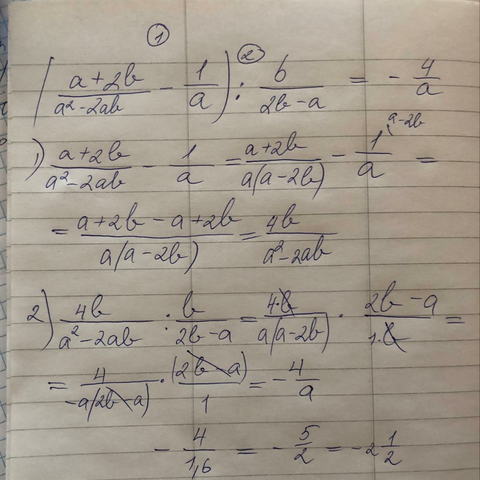 ① ②
(a+2b/a²-2ab - 1/a) : b/2b-a = -4/a
1) a+2b/a²-2ab - 1/a = a+2b/a(a-2b) - 1/a a-2b =
= a+2b-a+2b/a(a-2b) = 4b/a²-2ab
2) 4b/a²-2ab : b/2b-a = 4·b/a(a-2b) · 2b-a/1·b =
= 4/-a(2b-a) · (2b-a)/1 = -4/a
-4/1,6 = -5/2 = -2 1/2